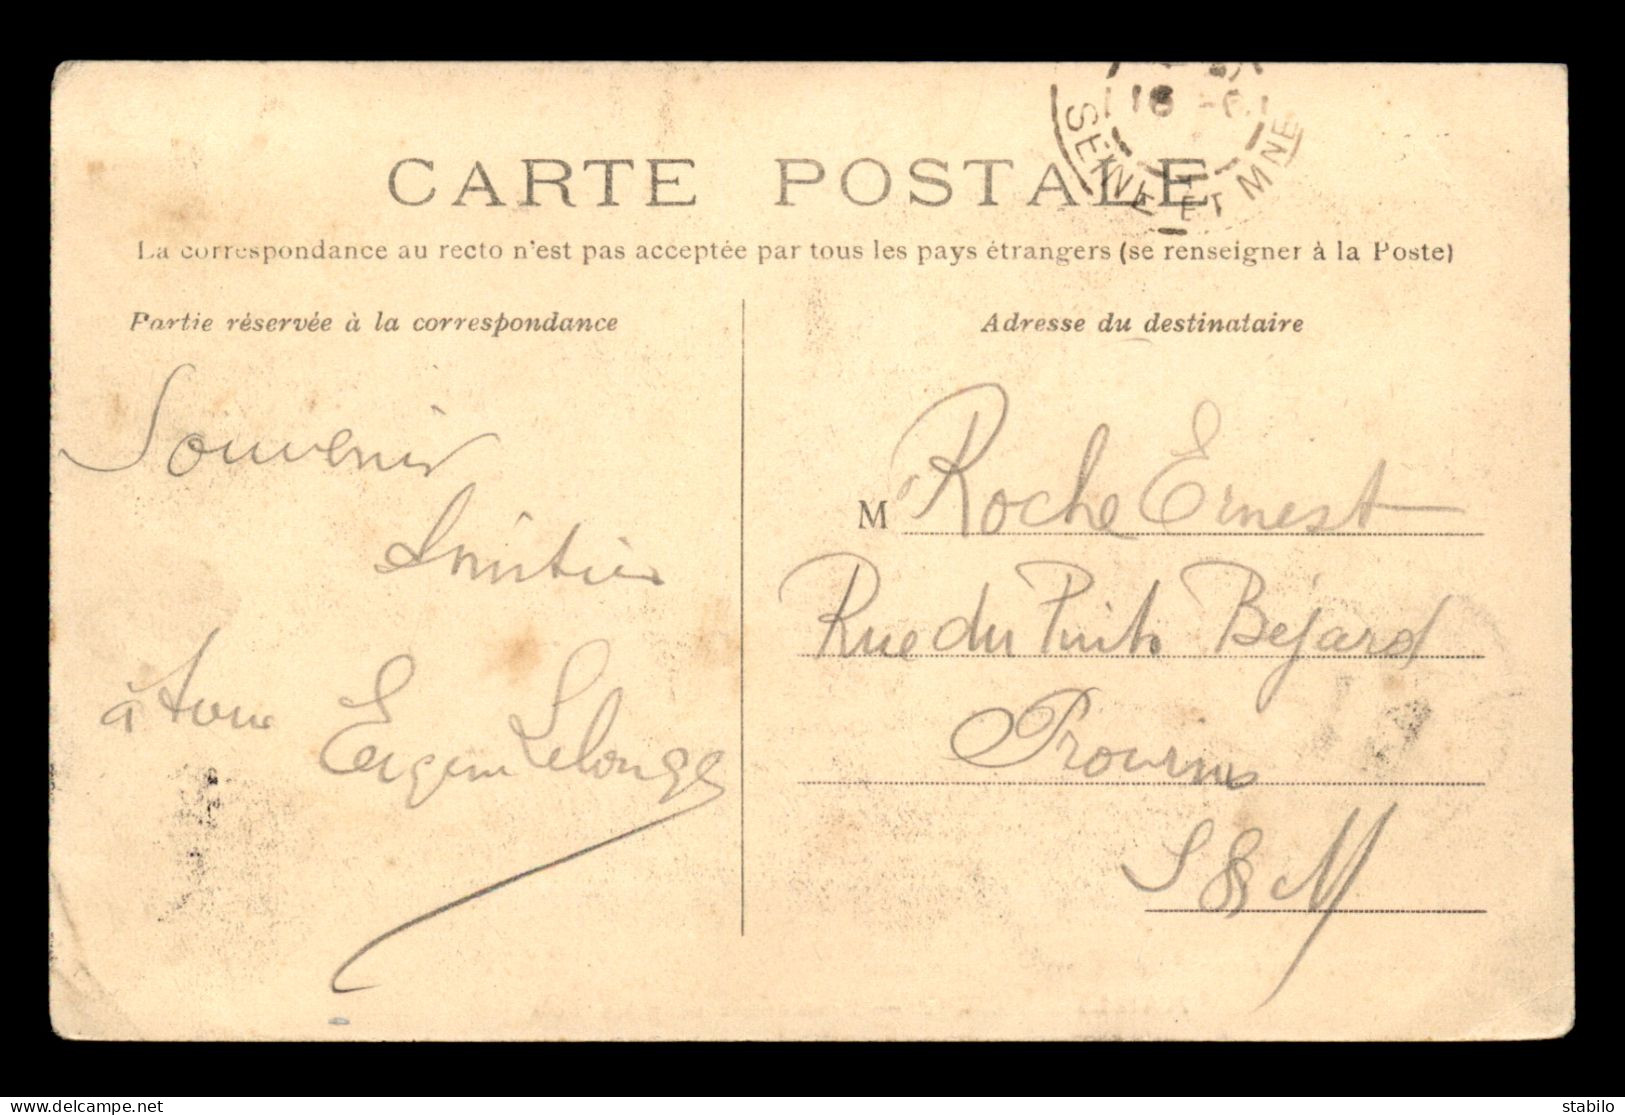 18 -6
SEINE ET MNE
CARTE POSTALE
La correspondance au recto n'est pas acceptée par tous les pays étrangers (se renseigner à la Poste)
Partie réservée à la correspondance
Souvenir
à tous
Eugène Lelong
Adresse du destinataire
M Roche Ernest
Rue du Puits Béjard
Provins
S & M
delcampe.net
stabilo